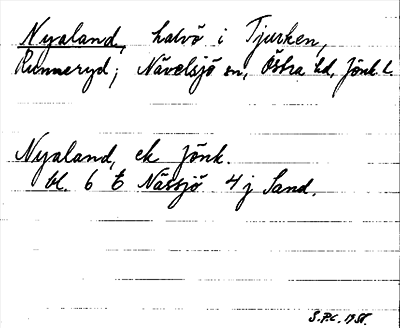 Nyaland, halvö i Tjurken,
Runneryd; Nävelsjö sn, Östra hd, Jönk. l.
Nyaland, ek Jönk.
bl. 6 E Nässjö 4 j Sand.
S.P.C. 1958.